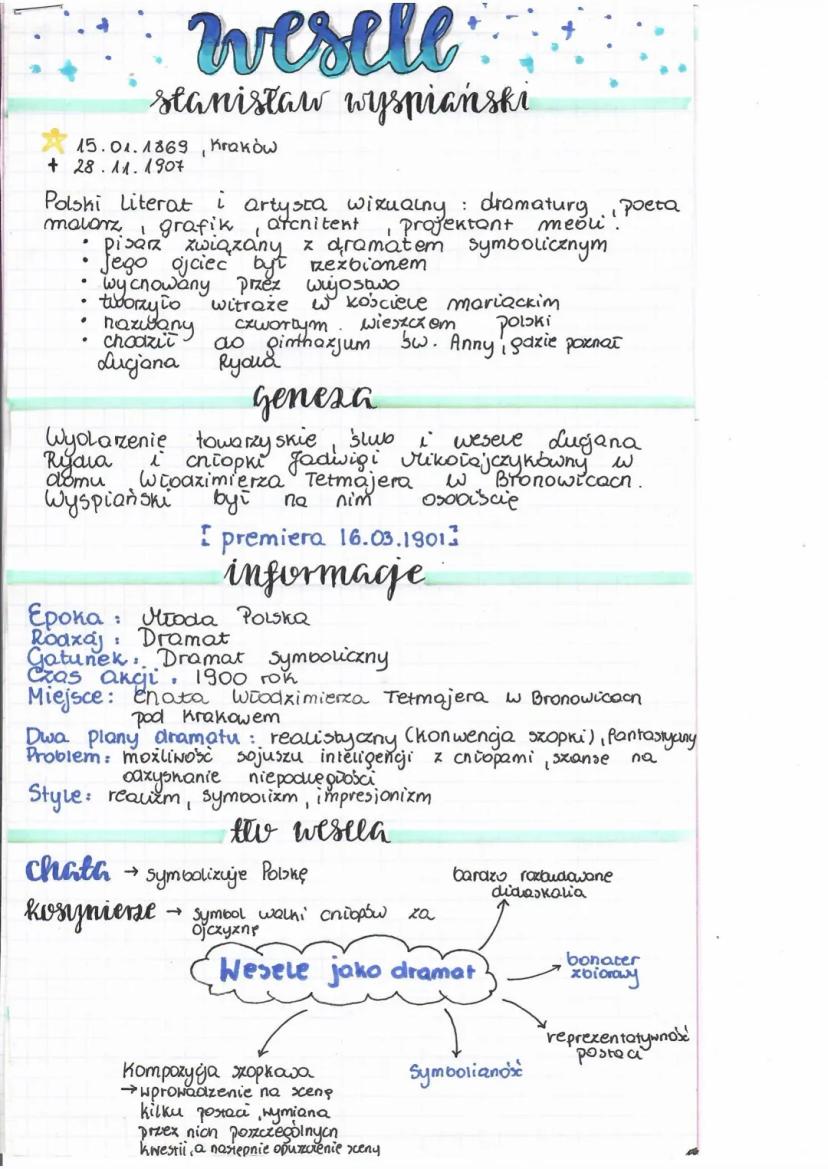 wesele
stanisław wyspiański
15.01.1869, Kraków
+ 28.11.1907
Polski Literat i artysta wizualny: dramaturg, poeta
malarz, grafik, architekt, projektant mebli.
• pisarz związany z dramatem symbolicznym
• Jego ojciec był rzeźbiarzem
• wychowany przez wujostwo
• tworzył witraże w kościele mariackim
• nazwany czwartym wieszczem polski
• chodził do gimnazjum św. Anny, gdzie poznał
Lucjana Rydla
geneza
Wydarzenie towarzyskie, ślub i wesele Lucjana
Rydla i chłopki Jadwigi Mikołajczykówny w
domu Włodzimierza Tetmajera w Bronowicach.
Wyspiański był na nim osobiście
[premiera 16.03.1901]
informacje
Epoka: Młoda Polska
Rodzaj: Dramat
Gatunek: Dramat symboliczny
Czas akcji: 1900 rok
Miejsce: Chata Włodzimierza Tetmajera w Bronowicach
pod Krakowem
Dwa plany dramatu: realistyczny (konwencja szopki), fantastyczny
Problem: możliwość sojuszu inteligencji z chłopami, szanse na
odzyskanie niepodległości
Style: realizm, symbolizm, impresjonizm
tło wesela
chata → symbolizuje Polskę
kosynierze → symbol walki chłopów za
ojczyznę
bardzo rozbudowane
didaskalia
Wesele jako dramat
bohater
zbiorowy
reprezentatywność
postaci
Symboliczność
Kompozycja szopkowa
→ wprowadzenie na scenę
kilku postaci, wymiana
przez nich poszczególnych
kwestii, a następnie opuszczenie sceny